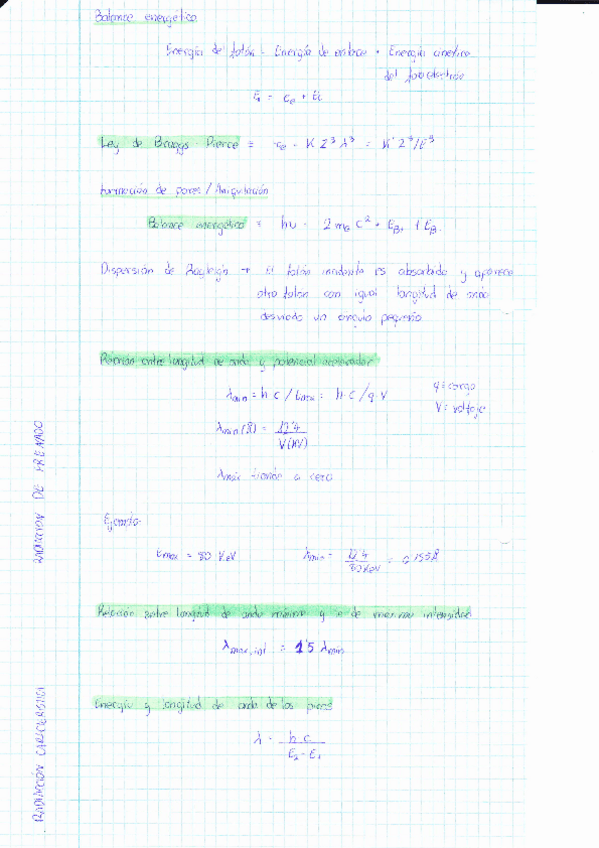 Balance energético
Energía del fotón = Energía de enlace + Energía cinética
del fotoelectrón
Ley de Braggs - Pierce = K Z³ λ³ = K' Z³/E³
Formación de pares / Aniquilación
Balance energético = hν = 2 me c² +
Dispersión de Rayleigh → El fotón incidente es absorbido y aparece
otro fotón con igual longitud de onda
desviado un ángulo pequeño
Relación entre longitud de onda y potencial acelerador
λmin = h c / Emax = h·c / q·V
q = carga
V = voltaje
λmin (Å) = 12'4
V(kV)
λmáx tiende a cero
Ejemplo
Emax = 80 KeV
λmin = 12'4 / 80 KeV = 0'155 Å
Relación entre longitud de onda mínima y la de máxima intensidad
λmax,int = 1'5 λmin
Energía y longitud de onda de los picos
λ = h c
E₂ - E₁
RADIACIÓN DE FRENADO
RADIACIÓN CARACTERÍSTICA